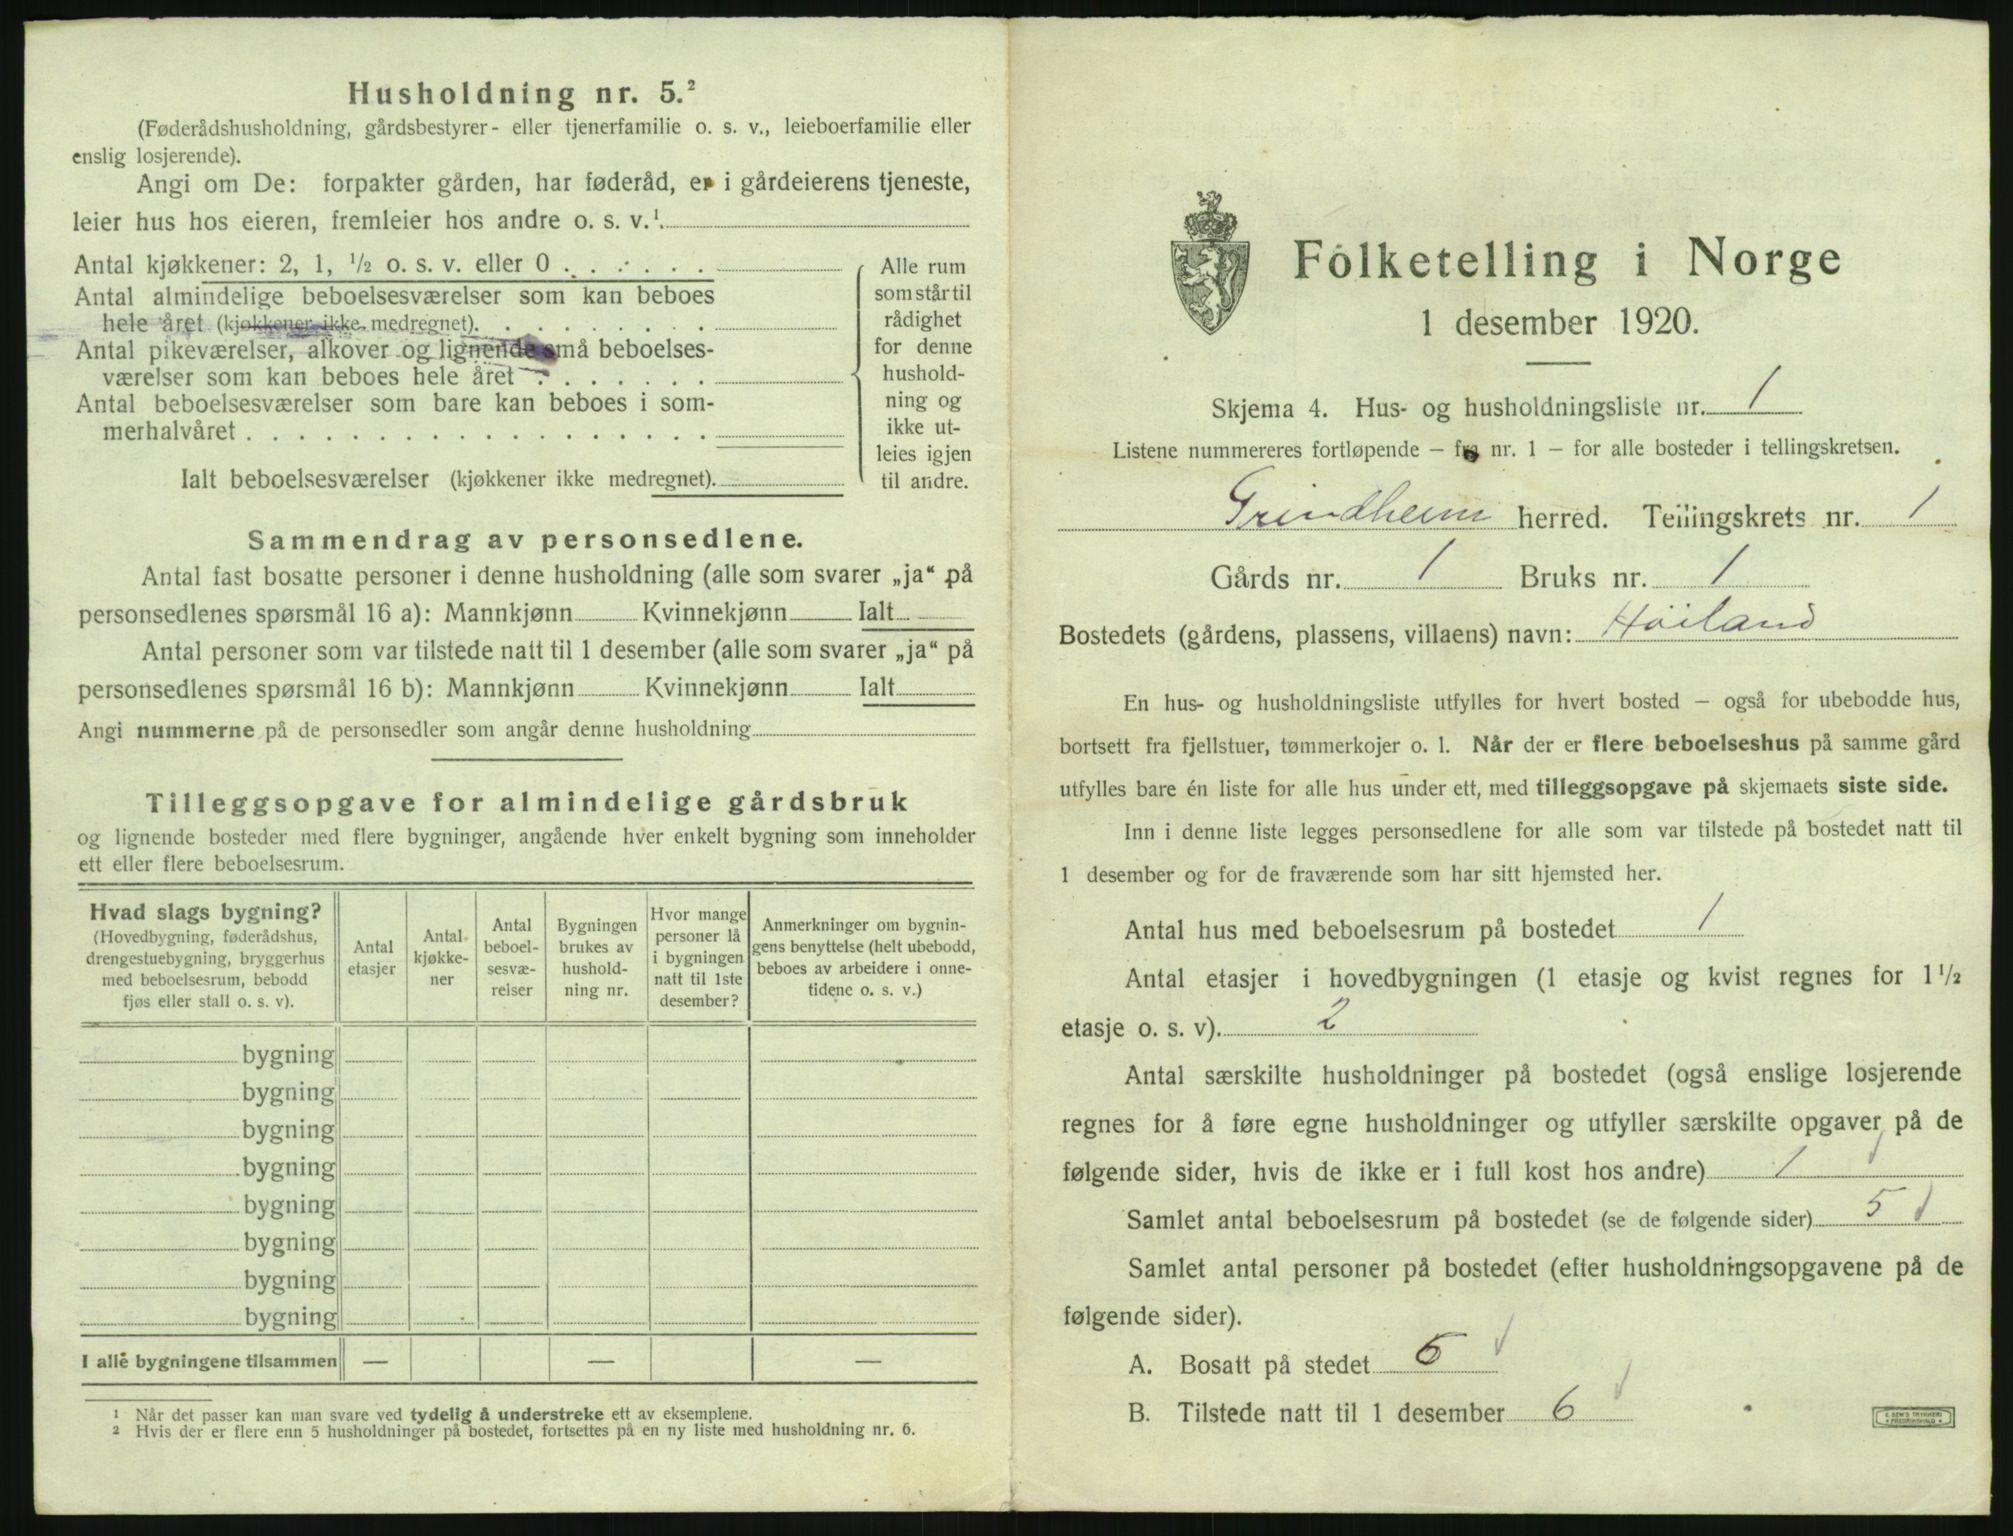 Husholdning nr. 5.²
(Føderådshusholdning, gårdsbestyrer- eller tjenerfamilie o. s. v., leieboerfamilie eller
enslig losjerende).
Angi om De: forpakter gården, har føderåd, er i gårdeierens tjeneste,
leier hus hos eieren, fremleier hos andre o. s. v.¹
Antal kjøkkener: 2, 1, ½ o. s. v. eller 0
Antal almindelige beboelsesværelser som kan beboes
hele året (kjøkkener ikke medregnet).
Antal pikeværelser, alkover og lignende små beboelses-
værelser som kan beboes hele året
Antal beboelsesværelser som bare kan beboes i som-
merhalvåret
Alle rum
som står til
rådighet
for denne
hushold-
ning og
ikke ut-
leies igjen
til andre.
Ialt beboelsesværelser (kjøkkener ikke medregnet).
Sammendrag av personsedlene.
Antal fast bosatte personer i denne husholdning (alle som svarer „ja“ på
personsedlenes spørsmål 16 a): Mannkjønn Kvinnekjønn Ialt
Antal personer som var tilstede natt til 1 desember (alle som svarer „ja“ på
personsedlenes spørsmål 16 b): Mannkjønn Kvinnekjønn Ialt
Angi nummerne på de personsedler som angår denne husholdning
Tilleggsopgave for almindelige gårdsbruk
og lignende bosteder med flere bygninger, angående hver enkelt bygning som inneholder
ett eller flere beboelsesrum.
Hvad slags bygning?
(Hovedbygning, føderådshus,
drengestuebygning, bryggerhus
med beboelsesrum, bebodd
fjøs eller stall o. s. v).
Antal
etasjer
Antal
kjøkke-
ner
Antal
beboel-
sesvæ-
relser
Bygningen
brukes av
hushold-
ning nr.
Hvor mange
personer lå
i bygningen
natt til 1ste
desember?
Anmerkninger om bygnin-
gens benyttelse (helt ubebodd,
beboes av arbeidere i onne-
tidene o. s. v.)
bygning
bygning
bygning
bygning
bygning
bygning
bygning
bygning
I alle bygningene tilsammen — — —
¹ Når det passer kan man svare ved tydelig å understreke ett av eksemplene.
² Hvis der er flere enn 5 husholdninger på bostedet, fortsettes på en ny liste med husholdning nr. 6.
Folketelling i Norge
1 desember 1920.
Skjema 4. Hus- og husholdningsliste nr. 1
Listene nummereres fortløpende — fra nr. 1 — for alle bosteder i tellingskretsen.
Grindheim herred. Tellingskrets nr. 1
Gårds nr. 1 Bruks nr. 1
Bostedets (gårdens, plassens, villaens) navn: Höiland
En hus- og husholdningsliste utfylles for hvert bosted — også for ubebodde hus,
bortsett fra fjellstuer, tømmerkojer o. l. Når der er flere beboelseshus på samme gård
utfylles bare én liste for alle hus under ett, med tilleggsopgave på skjemaets siste side.
Inn i denne liste legges personsedlene for alle som var tilstede på bostedet natt til
1 desember og for de fraværende som har sitt hjemsted her.
Antal hus med beboelsesrum på bostedet 1
Antal etasjer i hovedbygningen (1 etasje og kvist regnes for 1½
etasje o. s. v). 2
Antal særskilte husholdninger på bostedet (også enslige losjerende
regnes for å føre egne husholdninger og utfyller særskilte opgaver på de
følgende sider, hvis de ikke er i full kost hos andre) 1
Samlet antal beboelsesrum på bostedet (se de følgende sider) 5
Samlet antal personer på bostedet (efter husholdningsopgavene på de
følgende sider).
A. Bosatt på stedet
B. Tilstede natt til 1 desember 6